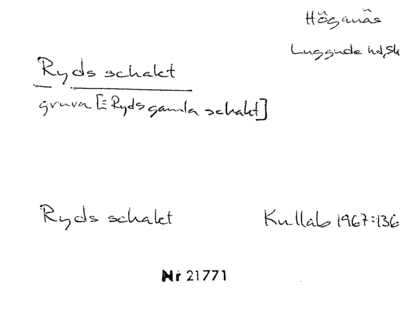 Höganäs
Luggude hd, Sk
Ryds schakt
gruva [= Ryds gamla schakt]
Ryds schakt Kullab 1967:136
Nr 21771